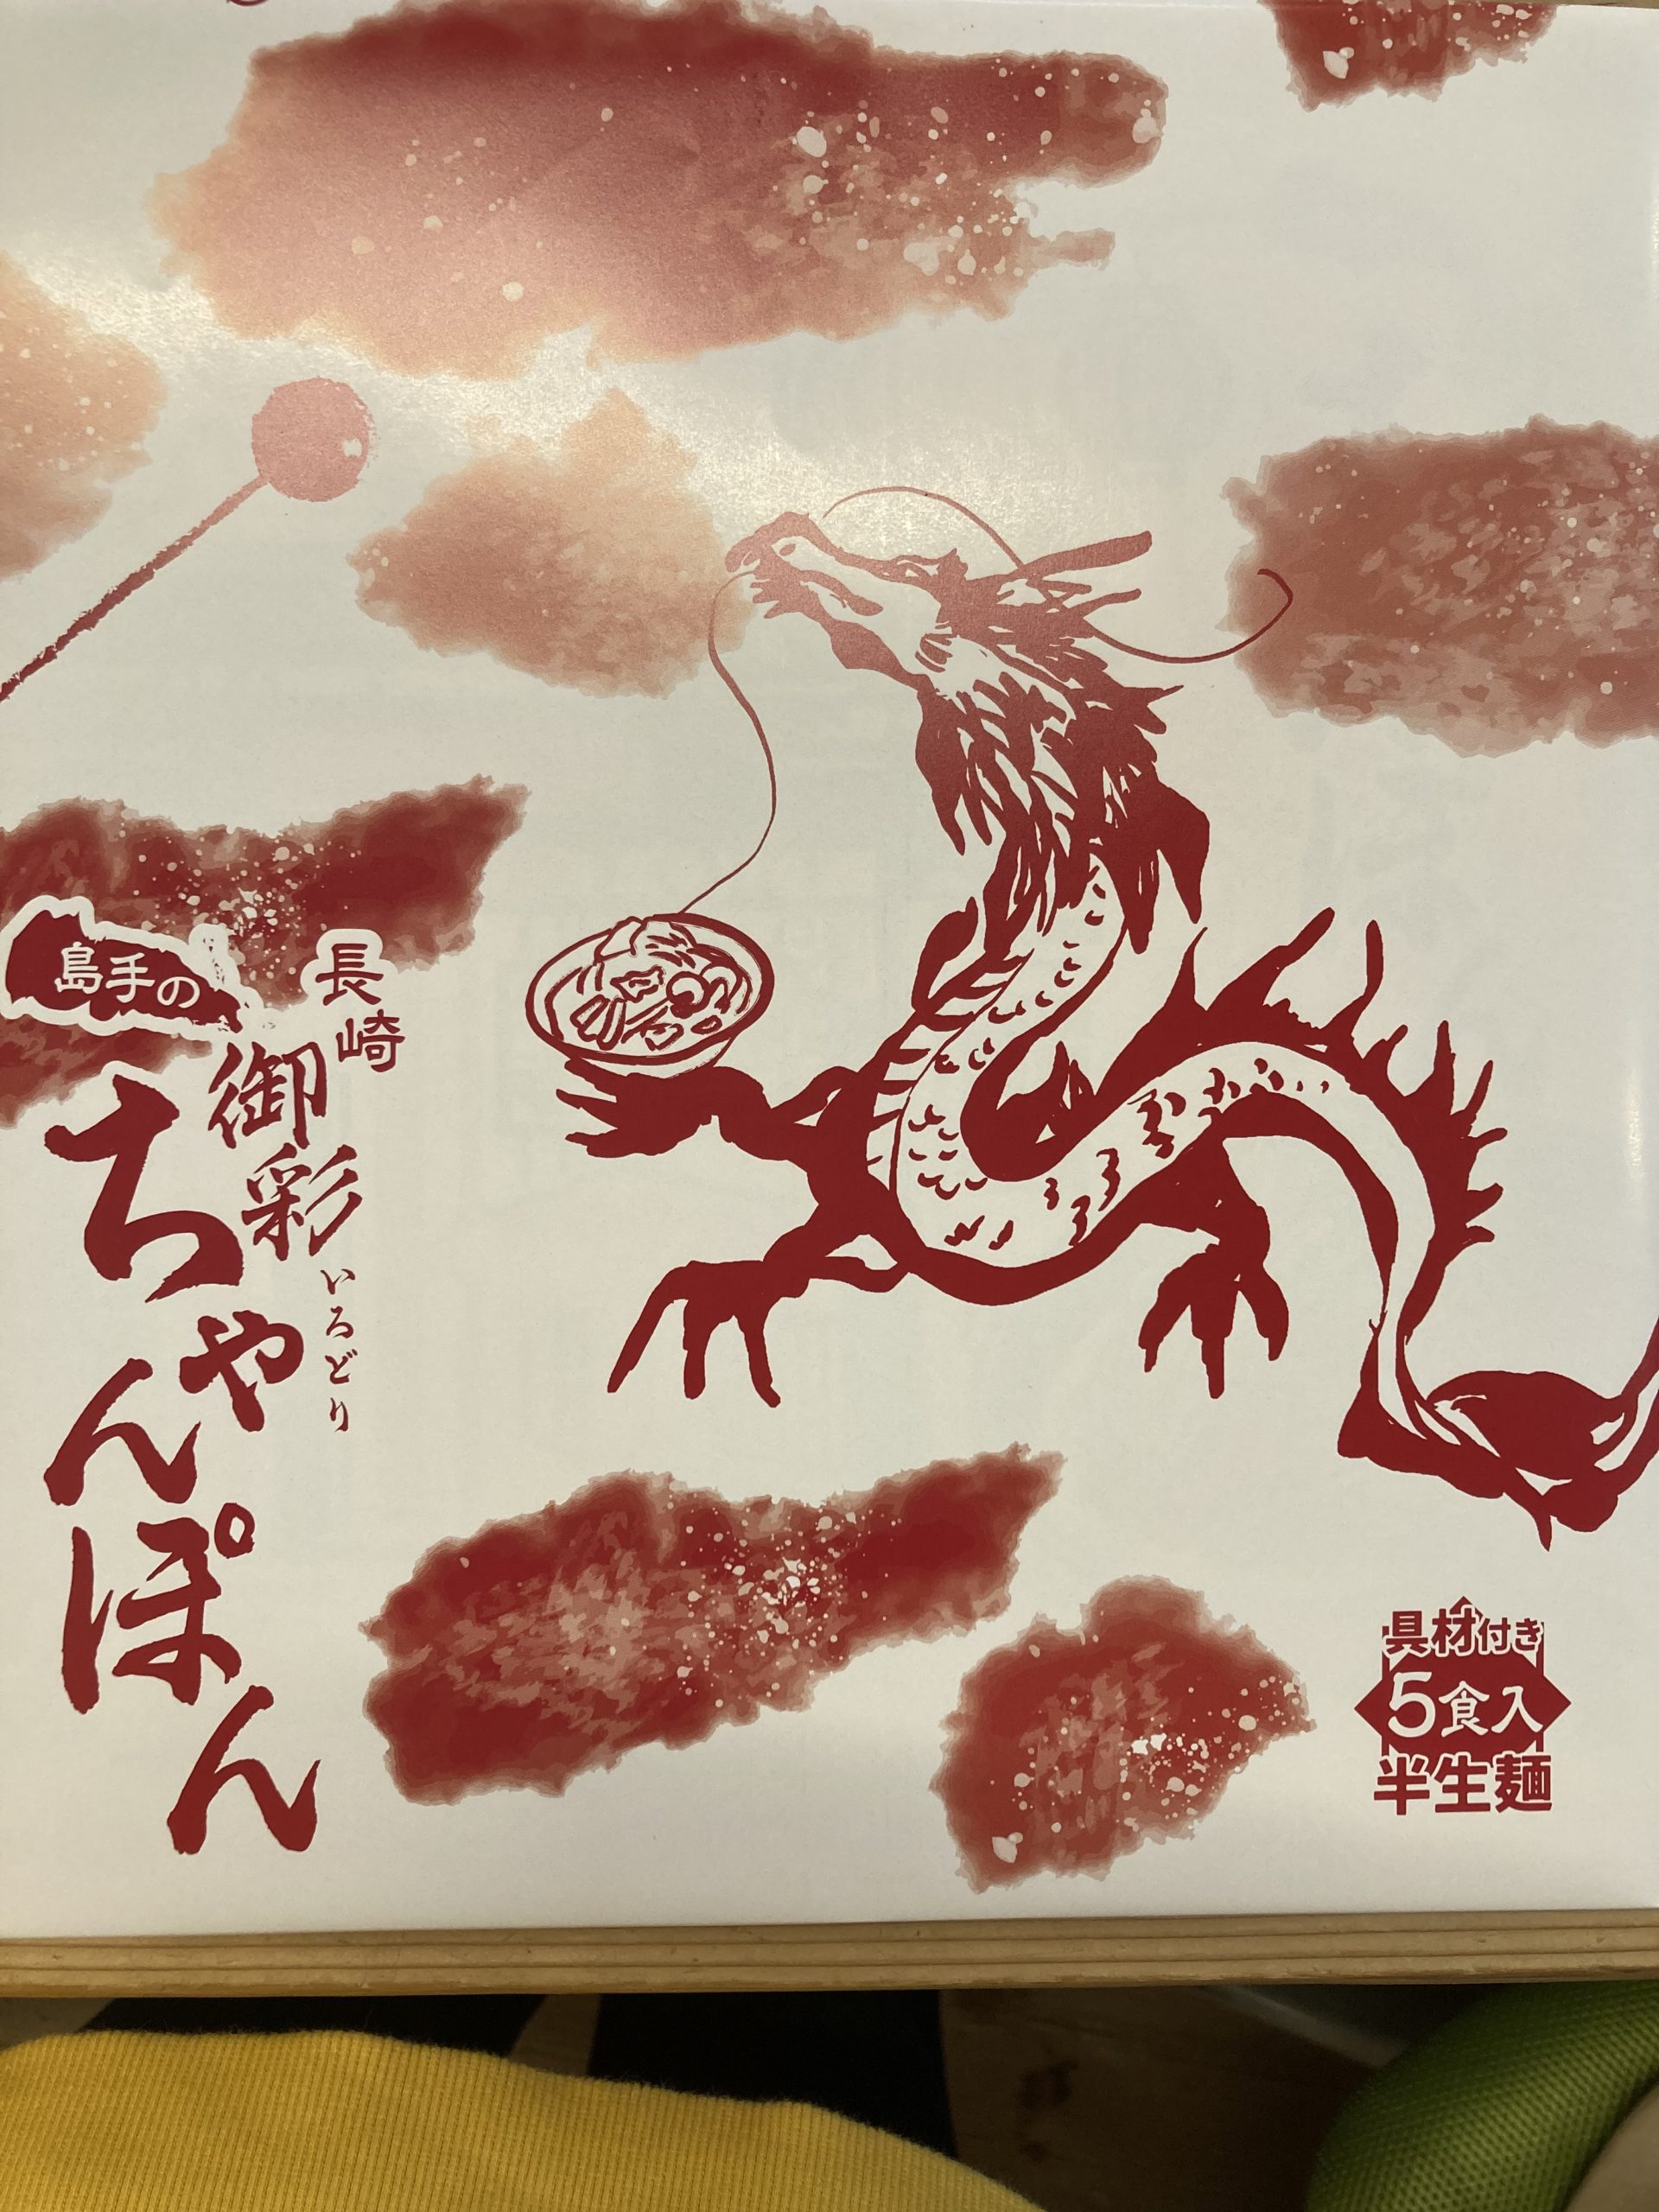 長崎
御彩
いろどり
島手の
ちゃんぽん
具材付き
5食入
半生麺